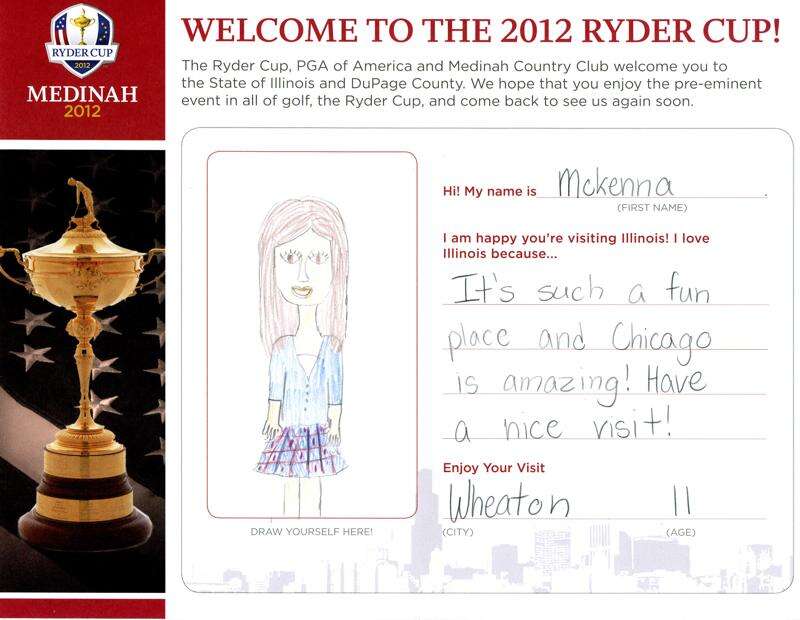 RYDER CUP
2012
MEDINAH
2012
WELCOME TO THE 2012 RYDER CUP!
The Ryder Cup, PGA of America and Medinah Country Club welcome you to
the State of Illinois and DuPage County. We hope that you enjoy the pre-eminent
event in all of golf, the Ryder Cup, and come back to see us again soon.
Hi! My name is Mckenna.
(FIRST NAME)
I am happy you're visiting Illinois! I love
Illinois because...
It's such a fun
place and Chicago
is amazing! Have
a nice visit!
Enjoy Your Visit
Wheaton 11
DRAW YOURSELF HERE! (CITY) (AGE)